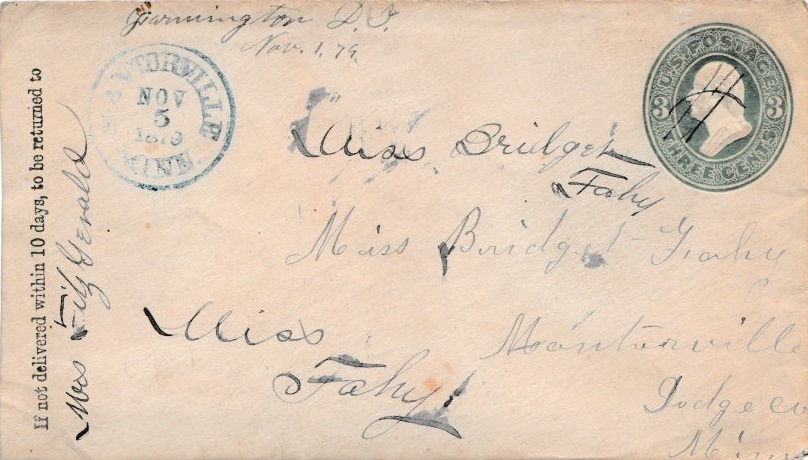 Farmington D.T.
Nov. 1, 79.
MANTORVILLE
NOV
5
1879
MINN.
U.S. POSTAGE
3 3
THREE CENTS
If not delivered within 10 days, to be returned to
Mrs Fitz Gerald
Miss Bridget
Fahy
Miss Bridget Fahy
Miss
Fahy
Mantorville
Dodge co
Minn